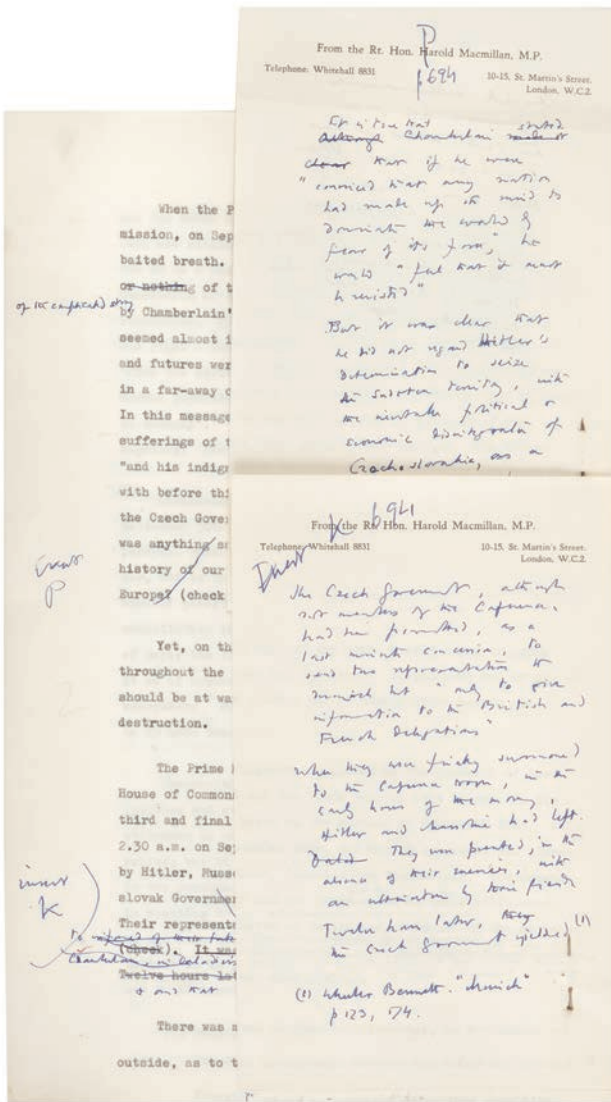 P
From the Rt. Hon. Harold Macmillan, M.P.
p 694
Telephone: Whitehall 8831
10-15, St. Martin's Street,
London, W.C.2.
It is true that stated
Although Chamberlain made it
clear that if he were
"convinced that any nation
had made up its mind to
dominate the world by
fear of its force", he
would "feel that it must
be resisted"
But it was clear that
he did not regard Hitler's
determination to seize
the Sudeten territory, with
the inevitable political &
economic disintegration of
Czechoslovakia, as a
Insert K 694
From the Rt. Hon. Harold Macmillan, M.P.
Telephone: Whitehall 8831
10-15, St. Martin's Street,
London, W.C.2.
The Czech Government, although
not members of the Conference,
had been permitted, as a
last minute concession, to
send two representatives to
Munich but "only to give
information to the British and
French Delegations"
When they were finally summoned
to the Conference room, in the
early hours of the morning,
Hitler and Mussolini had left.
They were presented, in the
absence of their enemies, with
an ultimatum by their friends
Twelve hours later, they
the Czech Government yielded (1)
(1) Wheeler Bennett. "Munich"
p 123, 174.
When the P
mission, on Sep
baited breath.
or nothing of t
of the complicated story
by Chamberlain'
seemed almost i
and futures wer
in a far-away c
In this message
sufferings of t
"and his indign
with before thi
the Czech Gover
was anything s
history of our
Insert
P
Europe? (check
Yet, on th
throughout the
should be at wa
destruction.
The Prime
House of Common
third and final
2.30 a.m. on Se
by Hitler, Muss
insert
K
slovak Governme
Their represent
to informed of their fate
(check). It was
Chamberlain, in
Twelve hours lat
There was
outside, as to t